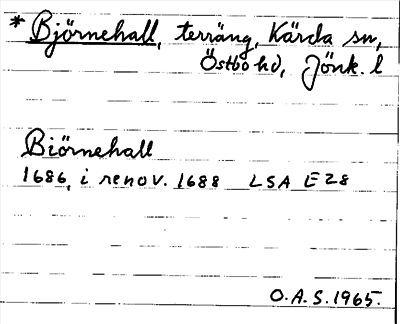 * Björnehall, terräng, Kärda sn,
Östbo hd, Jönk. l
Biörnehall
1686, i renov. 1688 LSA E28
O.A.S. 1965.